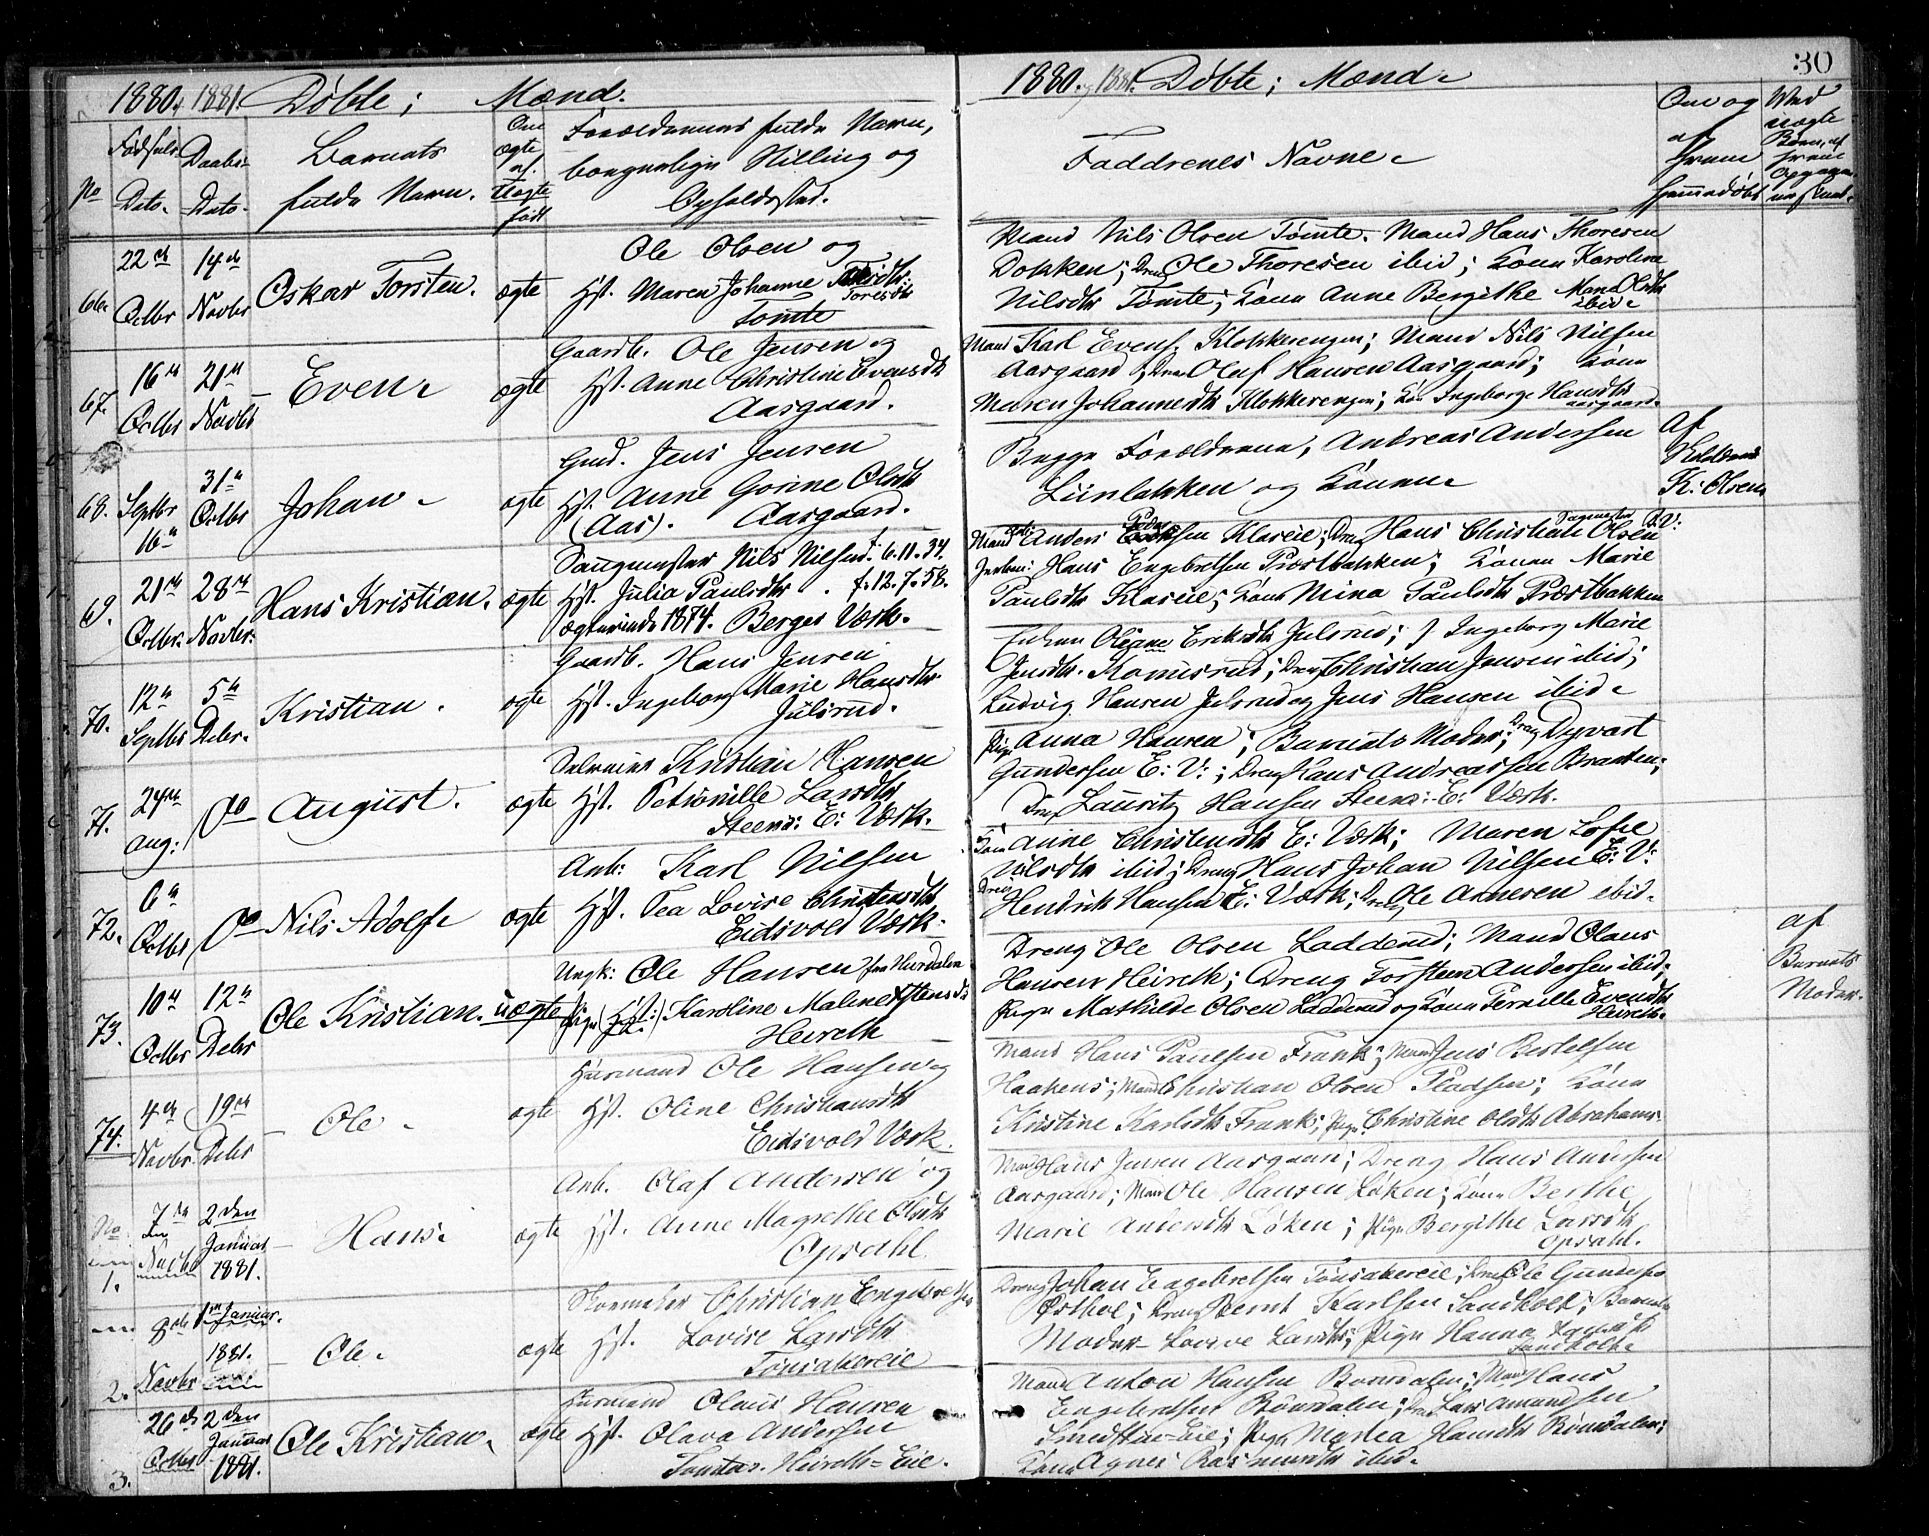 1880 & 1881. Døbte; Mænd.
No
Fødsels-
Dato.
Daabs-
Dato.
Barnets
fulde Navn.
Om
ægte
el.
Uægte
født
Forældrenes fulde Navn,
borgerlige Stilling og
Opholdssted.
66.
22de
Octbr
14de
Novbr
Oskar Torsten.
ægte
Ole Olsen og
Hst. Maren Johanne
Toresdtr
Tomte
67.
16de
Octbr
21de
Novbr
Even.
ægte
Gaardb. Ole Jensen og
Hst. Anne Christine Evensdtr
Aasgaard.
68.
Septbr
16de
31te
Octbr
Johan.
ægte
Gmd. Jens Jensen
Hst. Anne Gorine Olsdtr
(Aas). Aasgaard.
69.
21de
Octbr.
28de
Novbr.
Hans Kristian.
ægte
Saugmester Nils Nilsen. f. 6.11.34.
Hst. Julia Paulsdtr. f. 12.7.58.
Ægteviede 1874. Berger Værk.
70.
12te
Septbr
5te
Debr.
Kristian.
ægte
Gaardb. Hans Jensen
Hst. Ingeborg Marie Hansdtr
Julsrud.
71.
24de
Aug:
Do
August.
ægte
Kristian Hansen
Hst. Petronille Larsdtr
Steens: E: Værk.
72.
6te
Octbr
Do
Nils Adolf.
ægte
Arb: Karl Nilsen
Hst. Tea Lovise Christensdtr
Eidsvold Værk.
73.
10de
Octbr
12te
Debr
Ole Kristian.
uægte
Ungk: Ole Hansen fra Hurdalen
Pige Karoline Maline
Heireth
74.
4de
Novbr.
19de
Debr
Ole.
ægte
Huusmand Ole Hansen og
Hst. Oline Christiansdtr
Eidsvold Værk.
No
1.
7de
Novbr
2den
Januar
1881.
Hans.
ægte
Arb. Olaf Andersen og
Hst. Anne Magrethe Olsdtr
Opsahl.
2.
8de
Novbr
Januar.
1881.
Ole.
ægte
Skomaker Christian Engebretsen
Hst. Lovise Larsdtr
Tonsakereie
3.
26de
Octbr
2den
Januar
1881.
Ole Kristian.
ægte
Huusmand Olaus Hansen
Hst. Olava Andersen
Heireth-Eie.
30
1880. & 1881. Døbte; Mænd.
Faddrenes Navne.
Om og
af
hvem
hjemmedøbt
Mand Nils Olsen Tomte. Mand Hans Thoresen
Dokken; Dreng Ole Thoresen ibid; Kone Karoline
Nilsdtr Tomte; Kone Anne Bergithe Olsdtr
ibid.
Mand Karl Evens. Klokkerengen; Mand Nils Nilsen
Aasgaard; Dreng Oluf Hansen Aasgaard; Kone
Maren Johannesdtr Klokkerengen; Ingeborge Hansdtr
Aasgaard.
Begge Forældrene, Andreas Andersen
Liinbakken og Konen.
Af
K: Olsen
Mand Anders Klaseie; Dreng Hans Christian Olsen E:V:
Hans Engebretsen Præstbakken; Konen Marie
Paulsdtr Klaseie; Kone Mina Paulsdtr Præstbakken
Enken Oleane Eriksdtr Julsrud; Ingeborg Marie
Jensdtr. Komisrud; Dreng Christian Jensen ibid;
Ludvig Hansen Julsrud og Jens Hansen ibid.
Pige Anna Hansen; Barnets Moder; Dreng Dyvart
Gundersen E: V:; Dreng Hans Andreassen Braaten;
Dreng Lauritz Hansen Steens: E: Værk.
Kone Anne Christensdtr E: Værk; Maren Sofie
Nilsdtr ibid; Dreng Hans Johan Nilsen E: V:
Dreng Hendrik Hansen E: Værk; Dreng Ole Arnesen ibid.
Dreng Ole Olsen Ladderud; Mand Olaus
Hansen Heireth; Dreng Torsten Andersen ibid;
Pige Mathilde Olsen Ladderud og Kone Pernille Evensdtr
Heireth.
af
Barnets
Moder.
Mand Hans Paulsen Frank; Mand Jens Bertelsen
Haakens; Mand Christian Olsen Pladsen; Kone
Kristine Karlsdtr Frank; Pige Christine Olsdtr Abrahams.
Mand Hans Jensen Aasgaard; Dreng Hans Andersen
Aasgaard; Mand Ole Hansen Løken; Kone Berthe
Marie Andersdtr Løken; Pige Bergithe Larsdtr
Opsahl.
Dreng Johan Engebretsen Tonsakereie; Dreng Ole Gundersen
Østhol; Dreng Bernt Karlsen Sandholt; Barnets
Moder Lovise Larsdtr; Pige Hanna
Sandholt.
Mand Anton Hansen Bundalen; Mand Hans
Engebretsen Bundalen; Dreng Lars Amundsen
Smedstu-Eie; Pige Martea Hansdtr Bundalen;
Kone Agnes Rasmusdtr ibid.